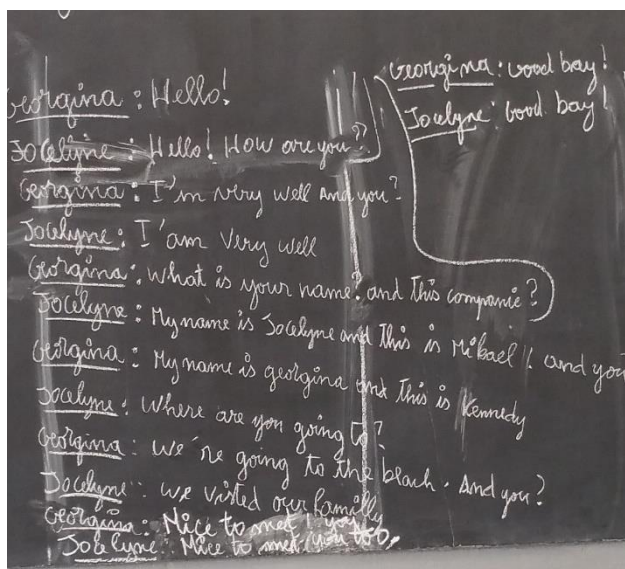 Georgina : Hello!
Jocelyne : Hello! How are you?
Georgina : I'm very well and you?
Jocelyne : I'am very well
Georgina : What is your name? and this companie?
Jocelyne : My name is Jocelyne and this is Mikael. and you
Georgina : My name is georgina and this is Kennedy
Jocelyne : Where are you going to?
Georgina : we're going to the beach. And you?
Jocelyne : we visted our familly
Georgina : Nice to met you
Jocelyne : Nice to met you too.
Georgina : Good bay!
Jocelyne : Good bay!